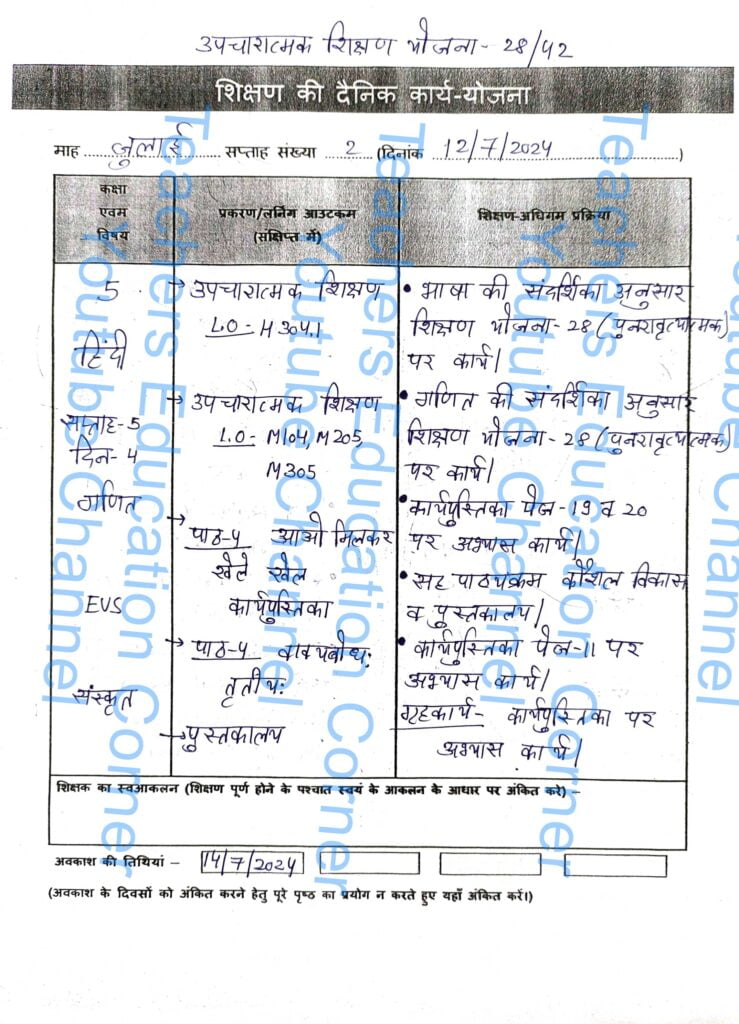 उपचारात्मक शिक्षण योजना - 28/42
शिक्षण की दैनिक कार्य-योजना
माह ..... जुलाई ..... सप्ताह संख्या ..... 2 ..... (दिनांक 12/7/2024 .....)
कक्षा
एवम
विषय
प्रकरण/लर्निंग आउटकम
(संक्षिप्त में)
शिक्षण-अधिगम प्रक्रिया
5
हिंदी
सप्ताह-5
दिन-4
गणित
EVS
संस्कृत
→ उपचारात्मक शिक्षण
L.O - H 304.1
→ उपचारात्मक शिक्षण
L.O - M104, M205,
M305
→ पाठ-4 आओ मिलकर
खेले खेल
कार्यपुस्तिका
→ पाठ-4 वाक्यबोध:
तृतीय:
→ पुस्तकालय
• भाषा की संदर्शिका अनुसार
शिक्षण योजना-28 (पुनरावृत्यात्मक)
पर कार्य।
• गणित की संदर्शिका अनुसार
शिक्षण योजना-28 (पुनरावृत्यात्मक)
पर कार्य।
• कार्यपुस्तिका पेज-19 व 20
पर अभ्यास कार्य।
• सह पाठ्यक्रम कौशल विकास
व पुस्तकालय।
• कार्यपुस्तिका पेज-11 पर
अभ्यास कार्य।
गृहकार्य - कार्यपुस्तिका पर
अभ्यास कार्य।
शिक्षक का स्वआकलन (शिक्षण पूर्ण होने के पश्चात स्वयं के आकलन के आधार पर अंकित करे) –
अवकाश की तिथियां – 14/7/2024
(अवकाश के दिवसों को अंकित करने हेतु पूरे पृष्ठ का प्रयोग न करते हुए यहाँ अंकित करें।)
Teachers Education Corner
Youtube Channel
Teachers Education Corner
Youtube Channel
Teachers Education Corner
Youtube Channel